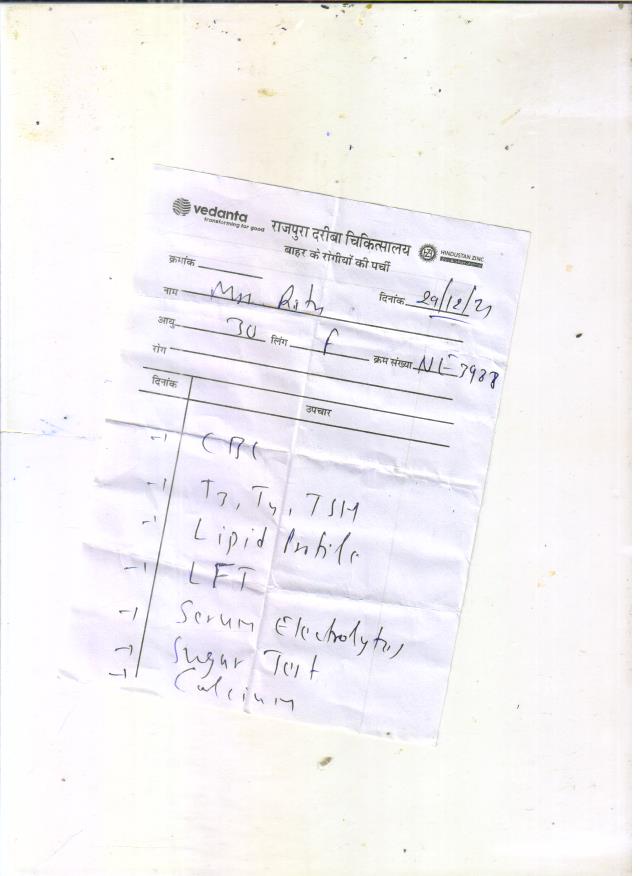 vedanta
transforming for good
राजपुरा दरीबा चिकित्सालय
HINDUSTAN ZINC
बाहर के रोगीयों की पर्ची
क्रमांक
नाम Mrs. Ritu दिनांक 29/12/21
आयु 30 लिंग F क्रम संख्या NE3988
रोग
दिनांक उपचार
CBC
T3, T4, TSH
Lipid Profile
LFT
Serum Electrolytes
Sugar Test
Calcium